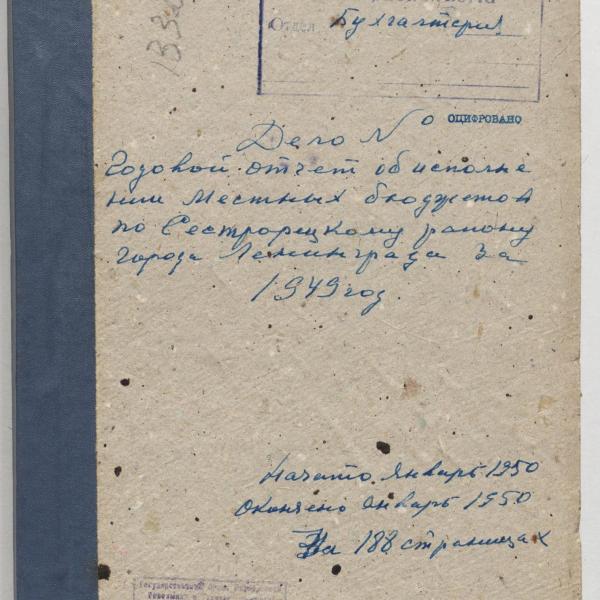 Отдел Бухгалтерия
ОЦИФРОВАНО
Дело №
Годовой отчет об исполне
нии Местных бюджетов
по Сестрорецкому району
города Ленинграда за
1949 год.
Начато январь 1950
Окончено январь 1950
На 188 страницах
Государственный